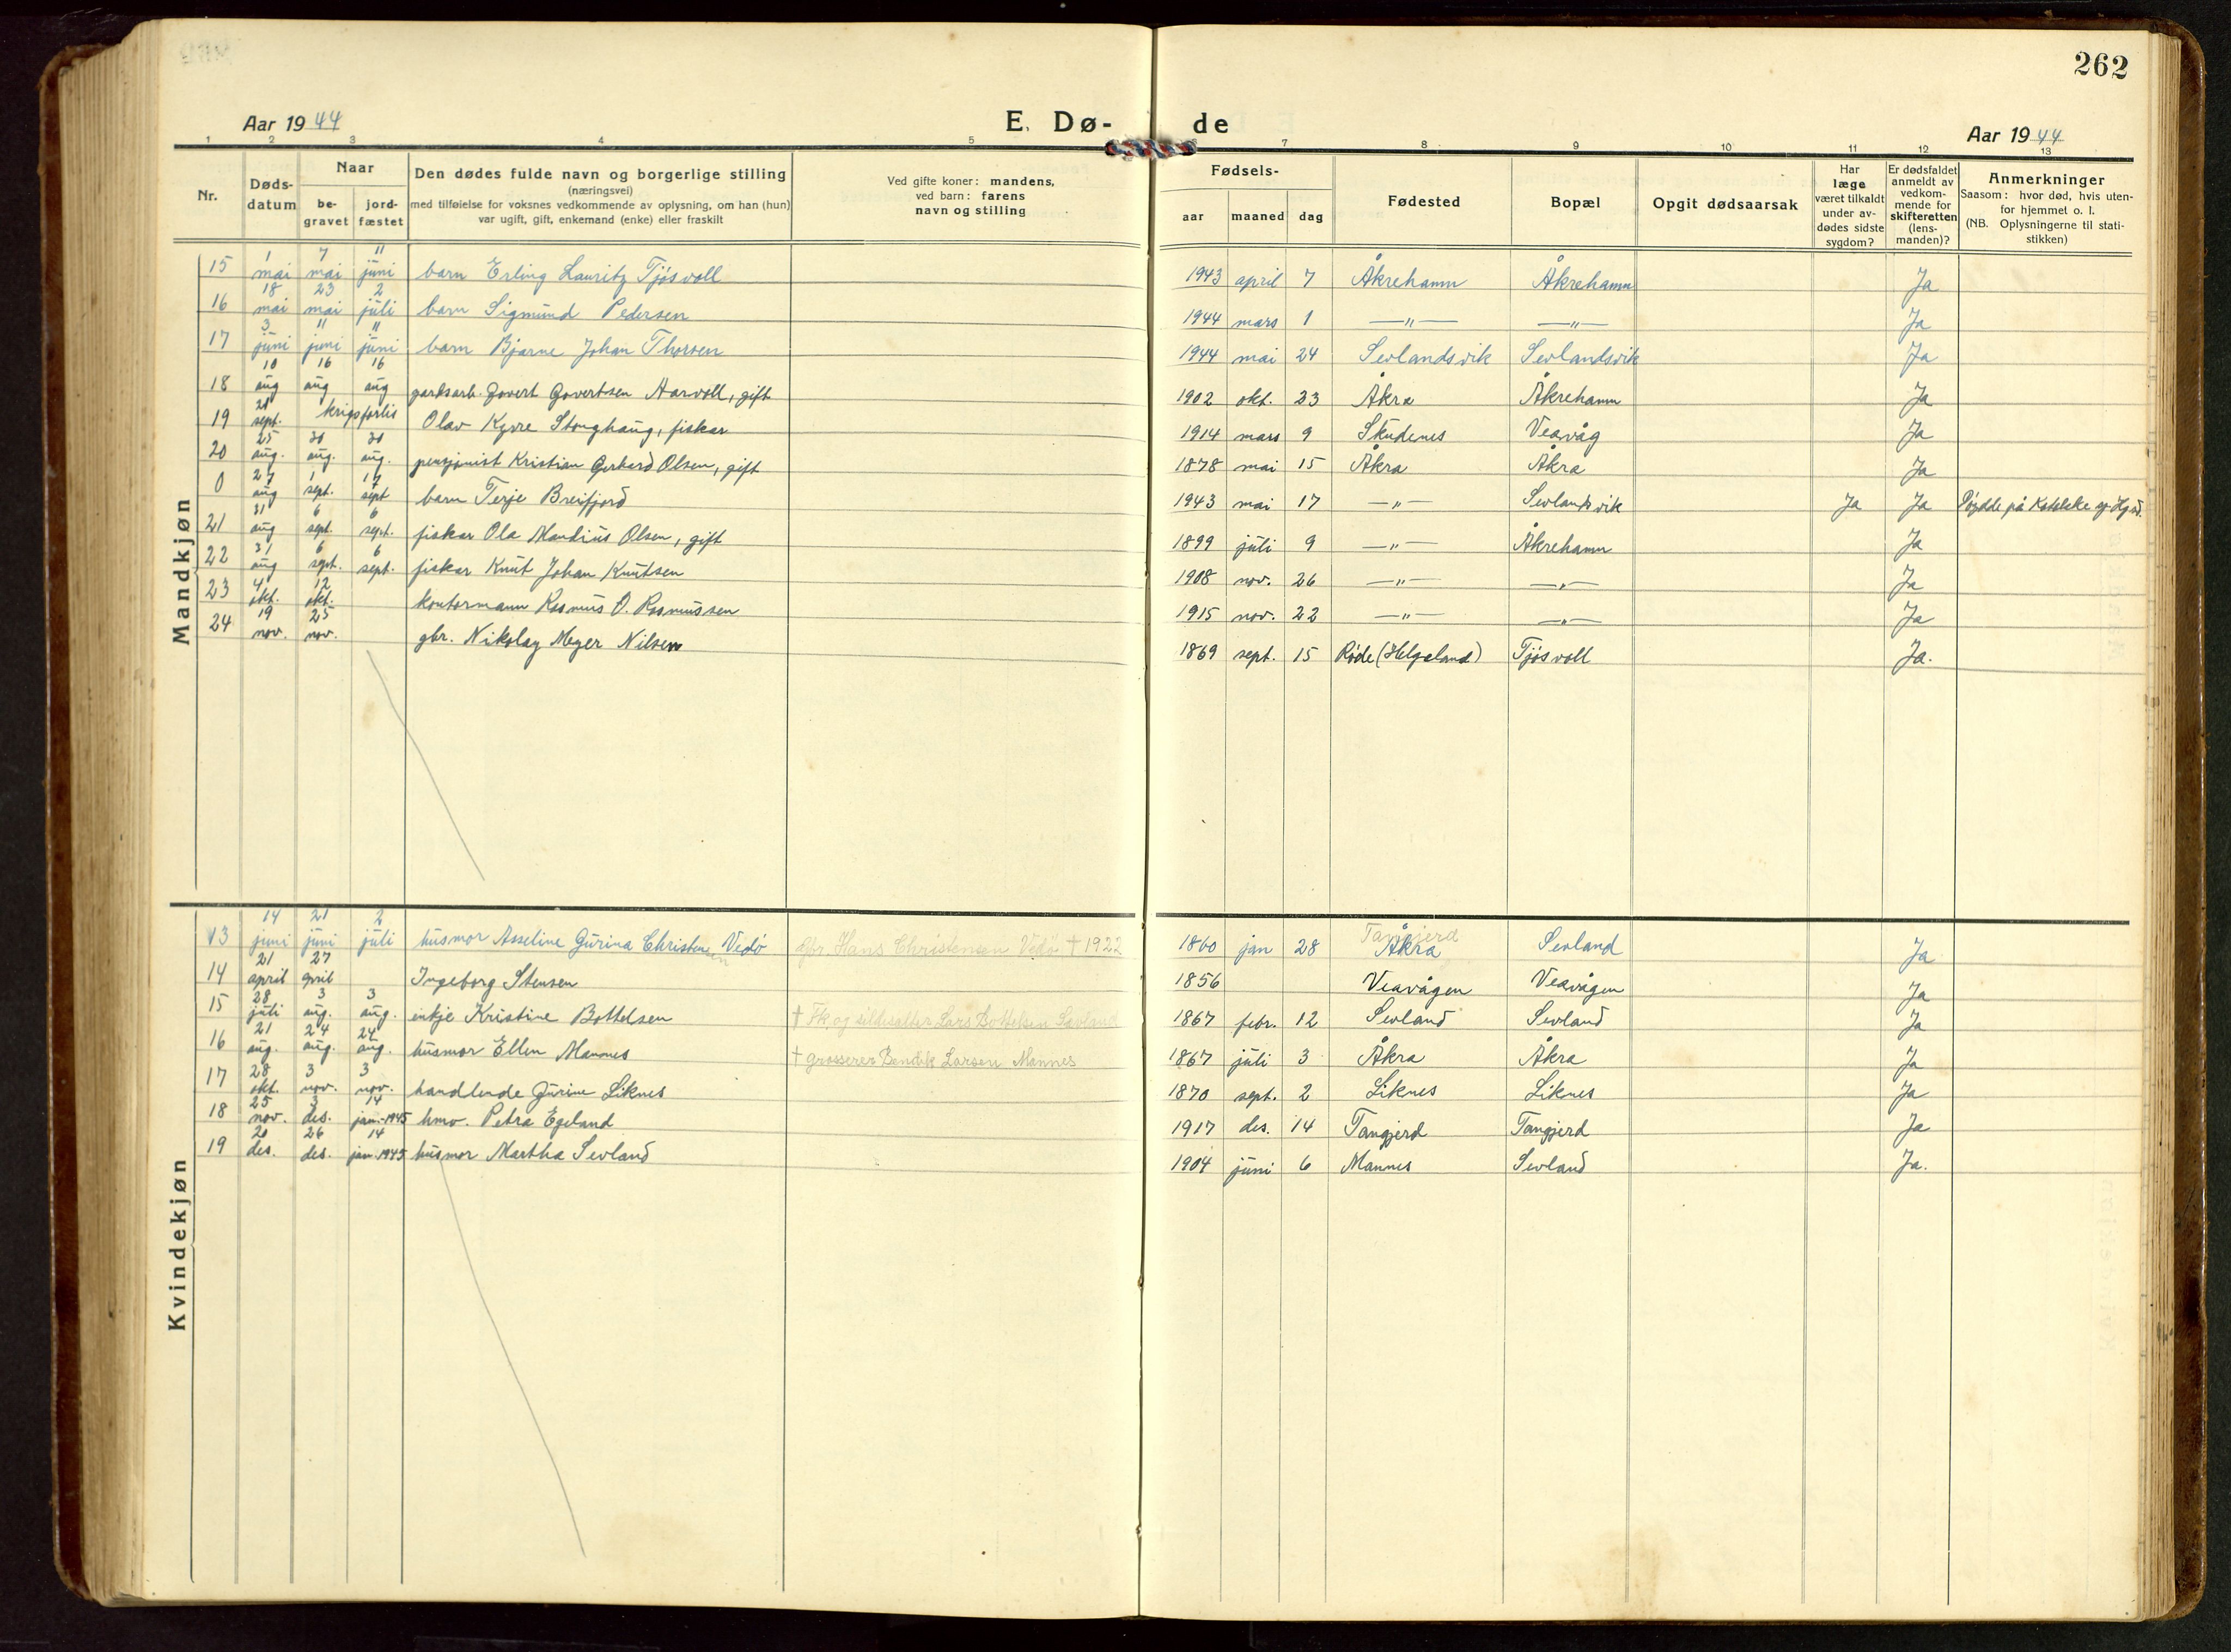 262
Aar 1944
E. Dø-
de
Aar 1944
1 2 3 4 5 7 8 9 10 11 12 13
Nr.
Døds-
datum
Naar
be-
gravet
jord-
fæstet
Den dødes fulde navn og borgerlige stilling
(næringsvei)
med tilføielse for voksnes vedkommende av oplysning, om han (hun)
var ugift, gift, enkemand (enke) eller fraskilt
Ved gifte koner: mandens,
ved barn: farens
navn og stilling
Fødsels-
aar maaned dag
Fødested
Bopæl
Opgit dødsaarsak
Har
læge
været tilkaldt
under av-
dødes sidste
sygdom?
Er dødsfaldet
anmeldt av
vedkom-
mende for
skifteretten
(lens-
manden)?
Anmerkninger
Saasom: hvor død, hvis uten-
for hjemmet o. l.
(NB. Oplysningerne til stati-
stikken)
Mandkjøn
15 1 mai 7 mai 11 juni barn Erling Lauritz Tjøsvoll 1943 april 7 Åkrehamn Åkrehamn Ja
16 18 mai 23 mai 2 juli barn Sigmund Pedersen 1944 mars 1 —"— —"— Ja
17 3 juni 11 juni 11 juni barn Bjarne Johan Thorsen 1944 mai 24 Sevlandsvik Sevlandsvik Ja
18 10 aug 16 aug 16 aug gardsarb. Govert Govertsen Aarvoll, gift 1902 okt. 23 Åkra Åkrehamn Ja
19 21 sept. krigsforlis Olav Kyrre Stonghaug, fiskar 1914 mars 9 Skudenes Veavåg Ja
20 25 aug. 30 aug. 30 aug. pensjonist Kristian Gerhard Olsen, gift 1878 mai 15 Åkra Åkra Ja
0 27 aug 1 sept. 17 sept barn Terje Breifjord 1943 mai 17 —"— Sevlandsvik Ja Ja
21 31 aug 6 sept. 6 sept. fiskar Ola Mandius Olsen, gift 1899 juli 9 —"— Åkrehamn Ja
22 31 aug 6 sept. 6 sept. fiskar Knut Johan Knutsen 1908 nov. 26 —"— —"— Ja
23 4 okt. 12 okt. kontormann Rasmus O. Rasmussen 1915 nov. 22 —"— —"— Ja
24 19 nov. 25 nov. gbr. Nikolay Meyer Nilsen 1869 sept. 15 Røde (Helgeland) Tjøsvoll Ja.
Kvindekjøn
13 14 juni 21 juni 2 juli husmor Asseline Gurina Christensen Vedø gbr. Hans Christensen Vedø † 1922 1860 jan 28 Tangjerd Åkra Sevland Ja
14 21 april 27 april Ingeborg Stensen 1856 Veavågen Veavågen Ja
15 28 juli 3 aug. 3 aug. enkje Kristine Bottelsen † Fk. og sildesalter Lars Bottelsen Sævland 1867 febr. 12 Sevland Sevland Ja
16 21 aug. 24 aug. 24 aug. husmor Ellen Mannes † grosserer Bendik Larsen Mannes 1867 juli 3 Åkra Åkra Ja
17 28 okt. 3 nov. 3 nov. handlende Gurine Liknes 1870 sept. 2 Liknes Liknes Ja
18 25 nov. 3 des. 14 jan. 1945 hmo. Petra Egeland 1917 des. 14 Tangjerd Tangjerd Ja
19 20 des. 26 des. 14 jan. 1945 husmor Martha Sevland 1904 juni 6 Mannes Sevland Ja.